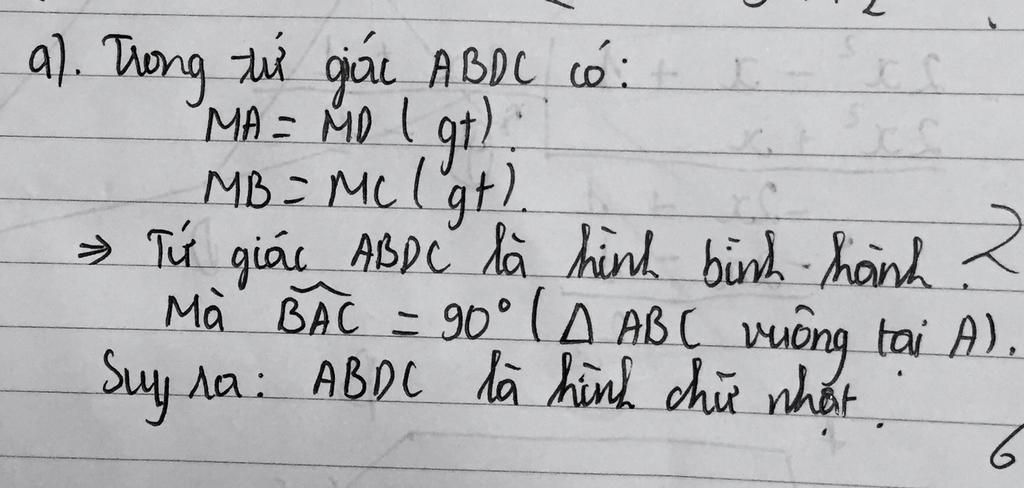 a). Trong tứ giác ABDC có:
MA = MD (gt).
MB = MC (gt).
⇒ Tứ giác ABDC là hình bình hành.
Mà \widehat{BAC} = 90° (Δ ABC vuông tại A).
Suy ra: ABDC là hình chữ nhật.
6